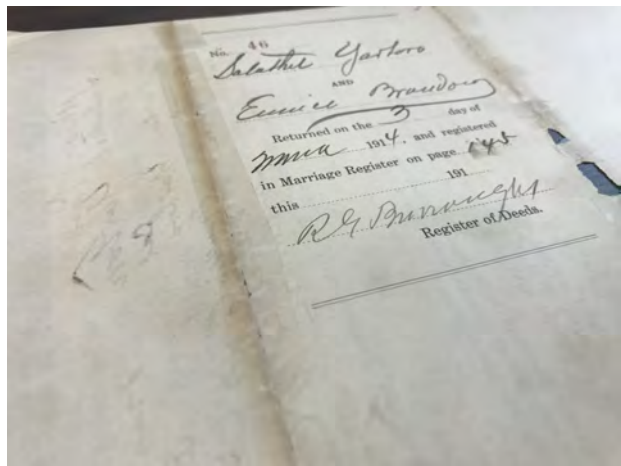 No. 46
Salathel Yarboro
AND
Eunice Brandon
Returned on the 3 day of
1914. and registered
in Marriage Register on page 145
this 191
R G Burroughs
Register of Deeds.
8